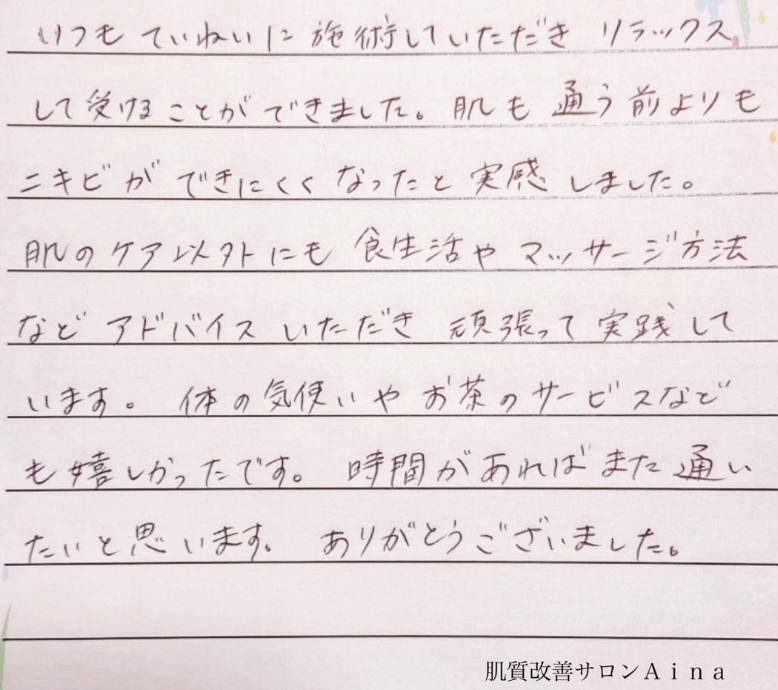 いつも ていねいに 施術していただき リラックス
して受けることができました。肌も 通う前よりも
ニキビが できにくくなったと 実感しました。
肌のケア以外にも 食生活や マッサージ方法
など アドバイス いただき 頑張って 実践して
います。 体の気使いや お茶のサービスなど
も嬉しかったです。 時間があればまた通い
たいと思います。 ありがとうございました。
肌質改善サロンAina